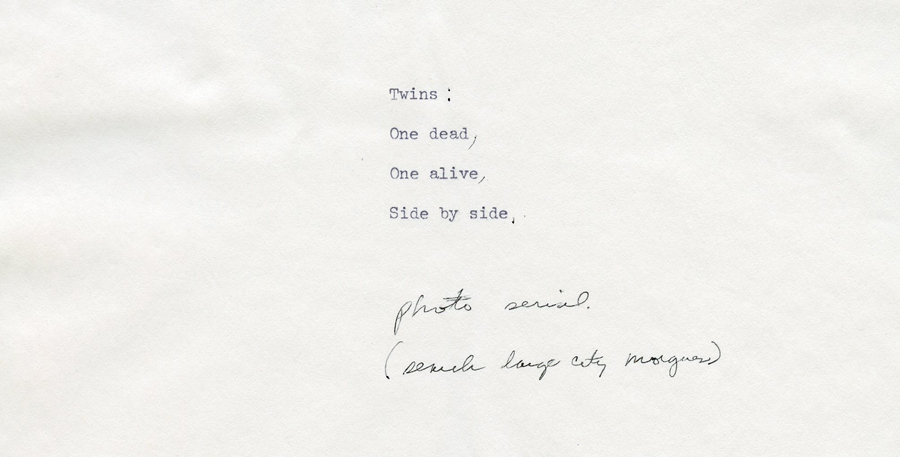 Twins :
One dead,
One alive,
Side by side,
photo serial.
(search large city morgues)